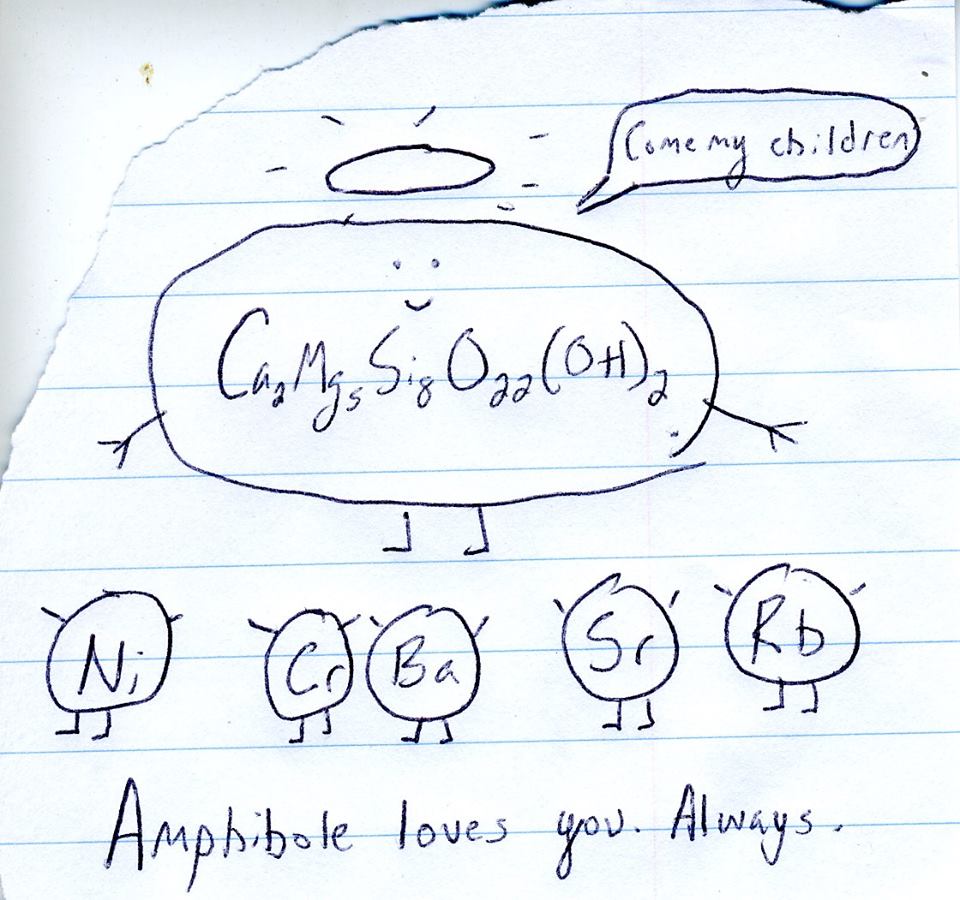 Come my children
Ca₂Mg₅Si₈O₂₂(OH)₂
Ni Cr Ba Sr Rb
Amphibole loves you. Always.